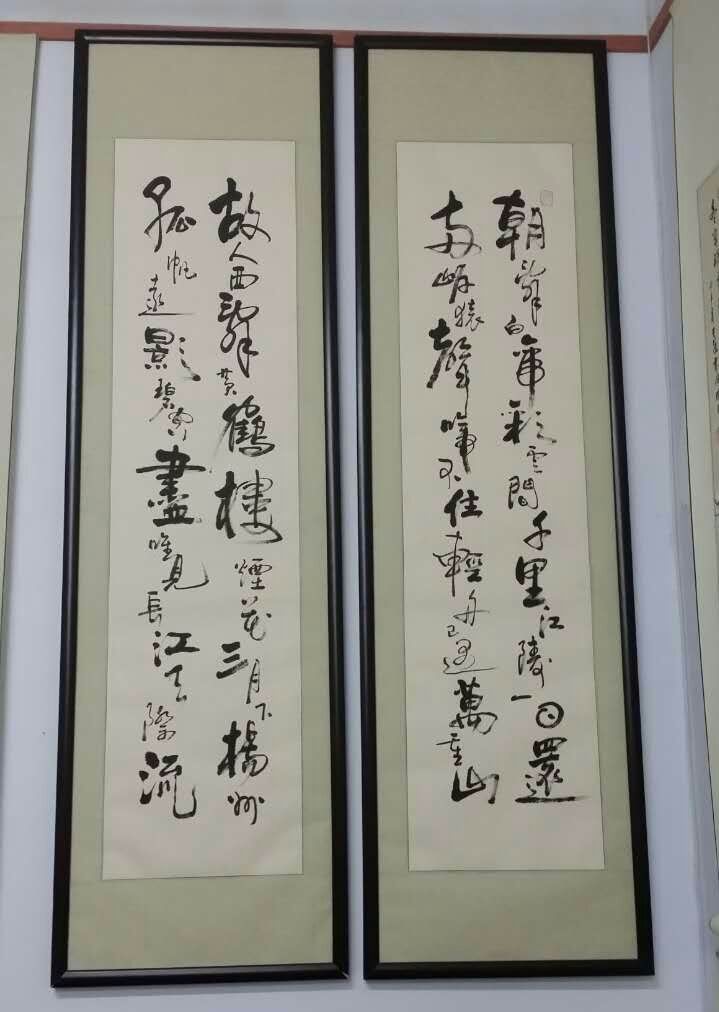 朝辭白帝彩雲間千里江陵一日還
兩岸猿聲啼不住輕舟已過萬重山
故人西辭黄鶴樓煙花三月下楊州
孤帆遠影碧空盡唯見長江天際流